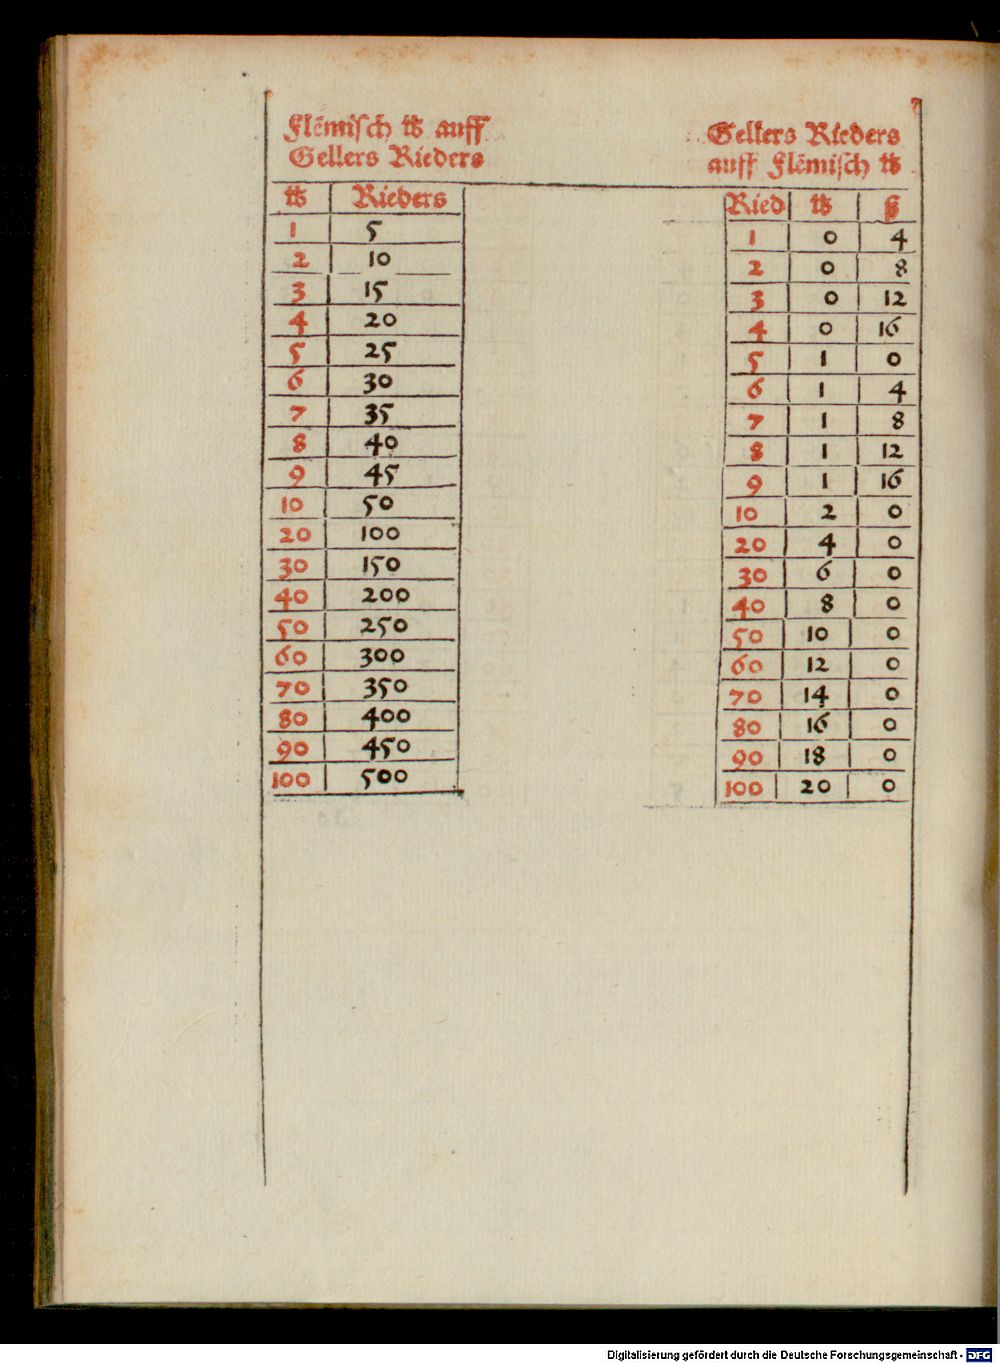 Flēmisch ℔ auff
Gellers Rieders
℔ Rieders
1 5
2 10
3 15
4 20
5 25
6 30
7 35
8 40
9 45
10 50
20 100
30 150
40 200
50 250
60 300
70 350
80 400
90 450
100 500
Gellers Rieders
auff Flēmisch ℔
Ried ℔ ß
1 0 4
2 0 8
3 0 12
4 0 16
5 1 0
6 1 4
7 1 8
8 1 12
9 1 16
10 2 0
20 4 0
30 6 0
40 8 0
50 10 0
60 12 0
70 14 0
80 16 0
90 18 0
100 20 0
Digitalisierung gefördert durch die Deutsche Forschungsgemeinschaft - DFG